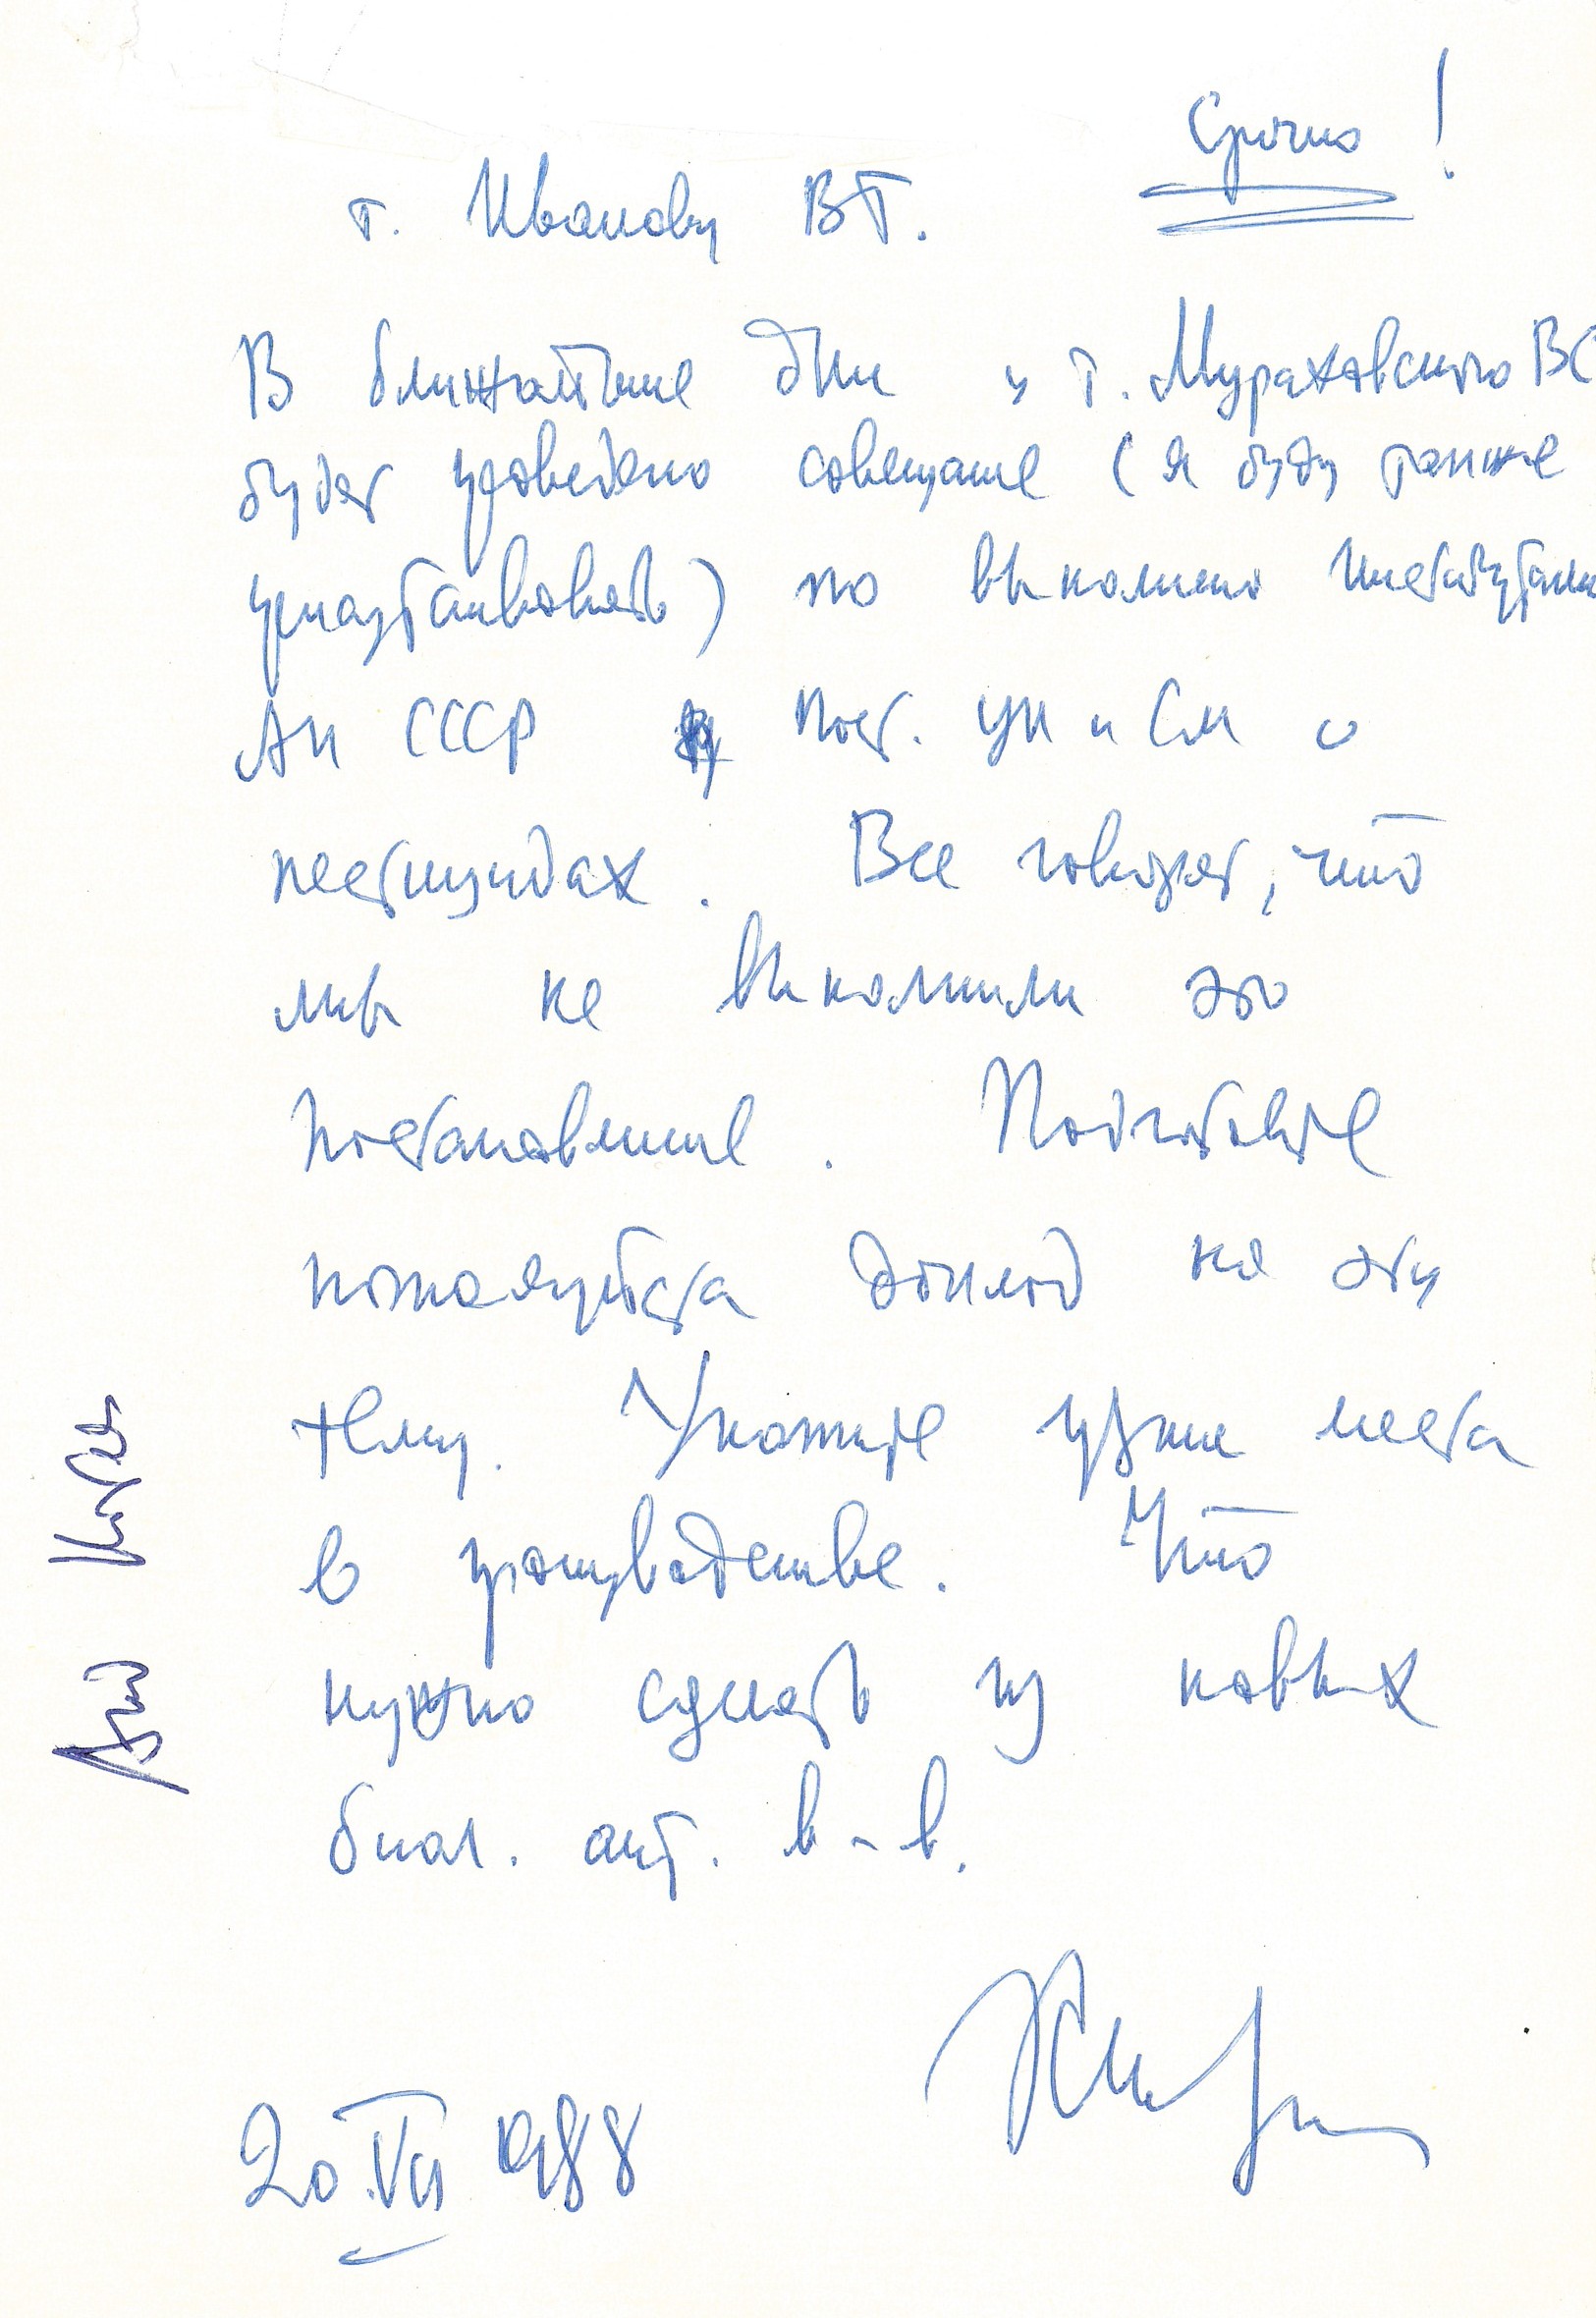 Срочно!
т. Иванову В.Т.
В ближайшие дни у т. Мураховского ВС
будет проведено совещание (я буду также
присутствовать) по выполнению институтами
АН СССР пост. ЦК и СМ о
пестицидах. Все говорят, что
мы не выполнили это
постановление. Подготовьте
пожалуйста доклад на эту
тему. Укажите узкие места
в производстве. Что
нужно сделать из новых
биол. акт. в-в.
20.VII 1988